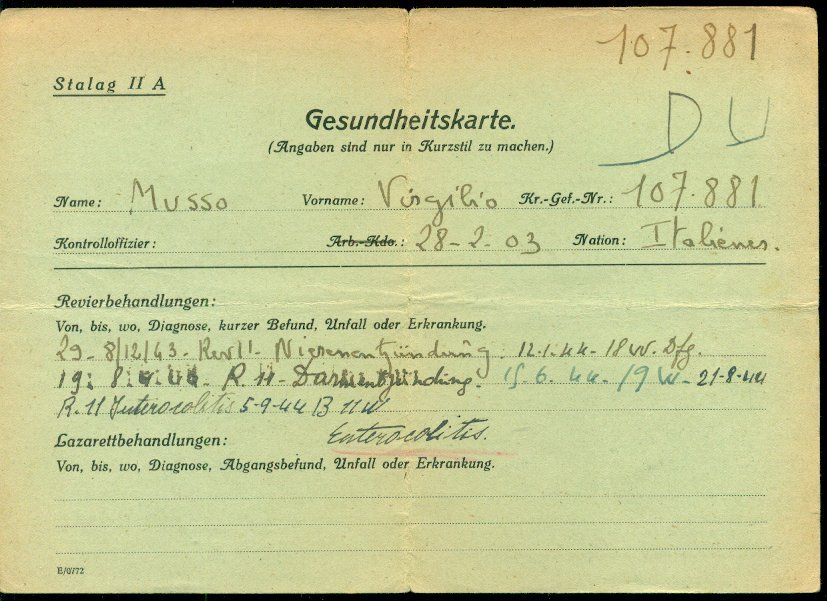 107.881
Stalag II A
DU
Gesundheitskarte.
(Angaben sind nur in Kurzstil zu machen.)
Name: Musso Vorname: Virgilio Kr.-Gef.-Nr.: 107.881
Kontrolloffizier: Arb.-Kdo.: 28-2-03 Nation: Italiener.
Revierbehandlungen:
Von, bis, wo, Diagnose, kurzer Befund, Unfall oder Erkrankung.
29-8/12/43-Rev II-Nierenentzündung. 12.1.44-18 W. Dfg.
R. II-Darmentzündung. 15.6.44-19 W-21-8-44
R. II Enterocolitis 5-9-44 B 11 W
Enterocolitis.
Lazarettbehandlungen:
Von, bis, wo, Diagnose, Abgangsbefund, Unfall oder Erkrankung.
E/0772